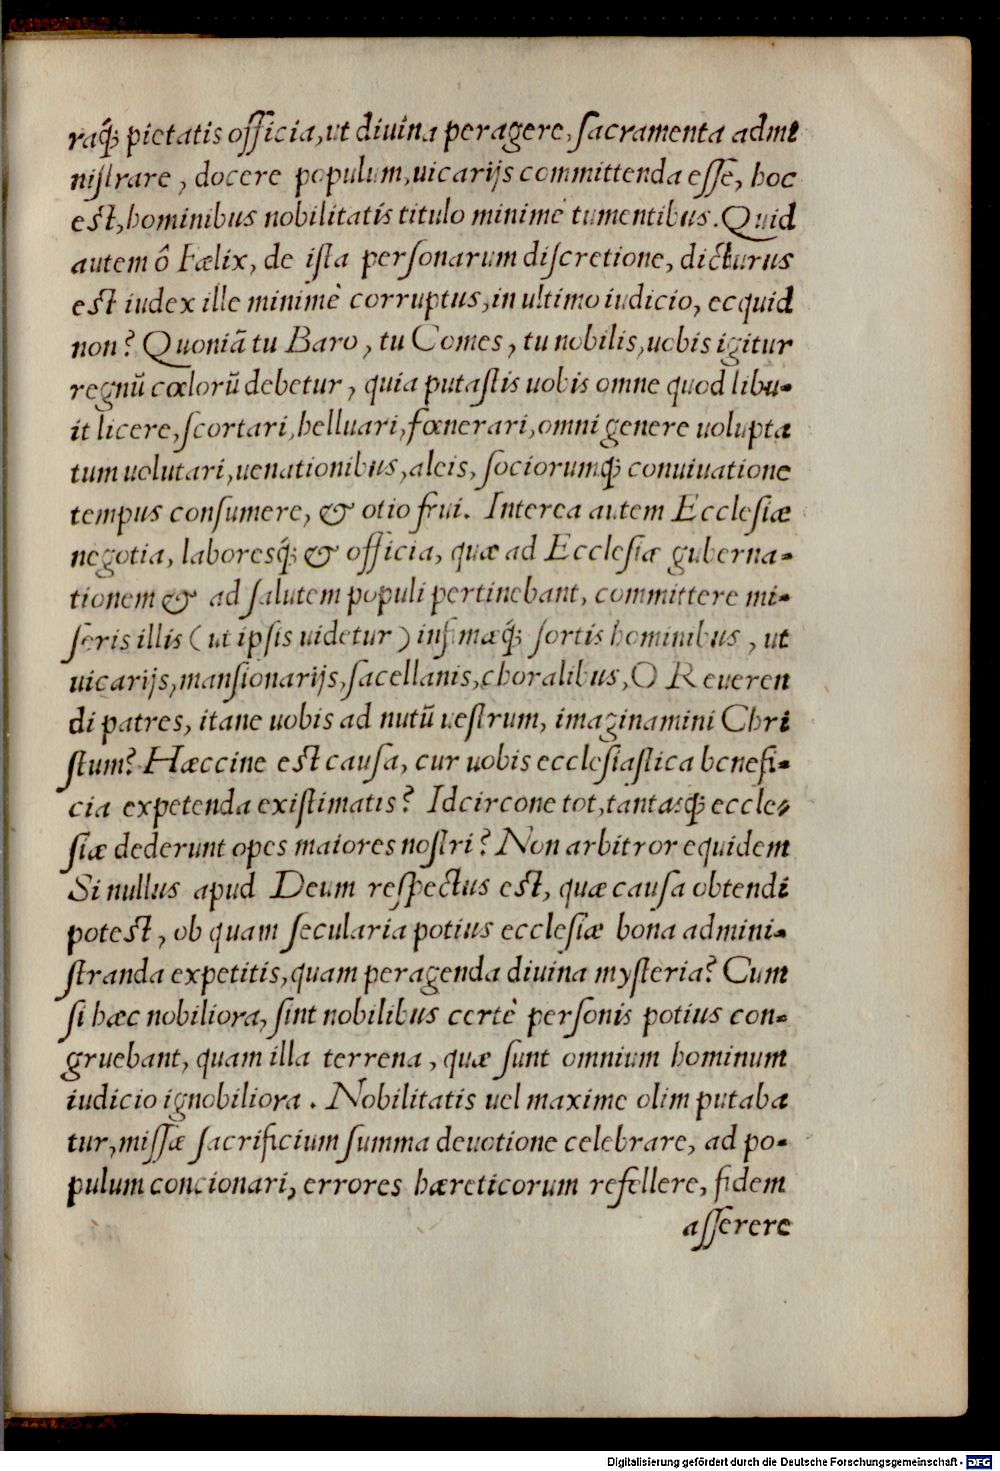 raq́; pietatis officia, ut diuina peragere, sacramenta admi
nistrare, docere populum, uicarijs committenda esse, hoc
est, hominibus nobilitatis titulo minimè tumentibus. Quid
autem ô Fælix, de ista personarum discretione, dicturus
est iudex ille minimè corruptus, in ultimo iudicio, ecquid
non? Quoniā tu Baro, tu Comes, tu nobilis, uobis igitur
regnū cœlorū debetur, quia putastis uobis omne quod libu-
it licere, scortari, helluari, fœnerari, omni genere uolupta
tum uolutari, uenationibus, aleis, sociorumq́; conuiuatione
tempus consumere, & otio frui. Interea autem Ecclesiæ
negotia, laboresq́; & officia, quæ ad Ecclesiæ guberna-
tionem & ad salutem populi pertinebant, committere mi-
seris illis (ut ipsis uidetur) infimæq́; sortis hominibus, ut
uicarijs, mansionarijs, sacellanis, choralibus, O Reueren
di patres, itane uobis ad nutū uestrum, imaginamini Chri
stum? Hæccine est causa, cur uobis ecclesiastica benefi-
cia expetenda existimatis? Idcircone tot, tantasq́; eccle-
siæ dederunt opes maiores nostri? Non arbitror equidem
Si nullus apud Deum respectus est, quæ causa obtendi
potest, ob quam secularia potius ecclesiæ bona admini-
stranda expetitis, quam peragenda diuina mysteria? Cum
si hæc nobiliora, sint nobilibus certè personis potius con-
gruebant, quam illa terrena, quæ sunt omnium hominum
iudicio ignobiliora. Nobilitatis uel maxime olim putaba
tur, missæ sacrificium summa deuotione celebrare, ad po-
pulum concionari, errores hæreticorum refellere, fidem
asserere
Digitalisierung gefördert durch die Deutsche Forschungsgemeinschaft - DFG